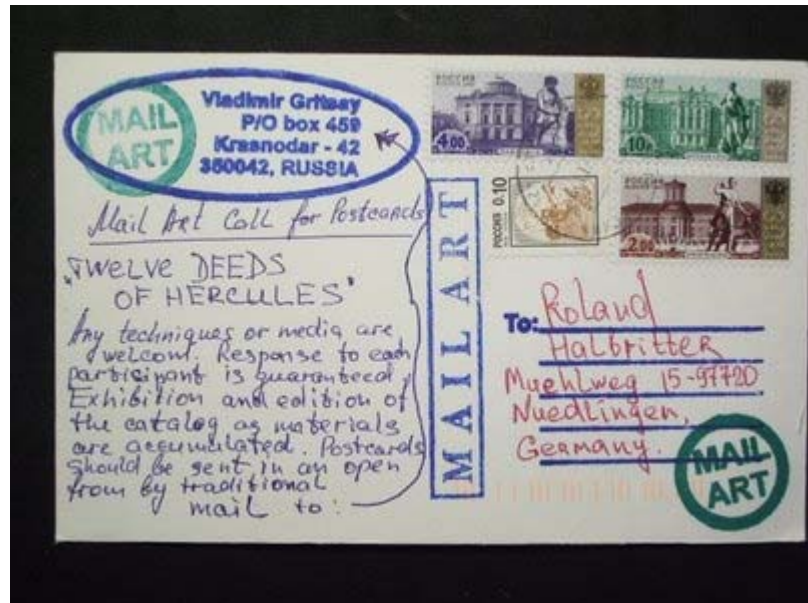 MAIL
ART
Vladimir Gritsay
P/O box 459
Krasnodar - 42
350042, RUSSIA
Mail Art Call for Postcards
"TWELVE DEEDS
OF HERCULES"
Any techniques or media are
welcom. Response to each
partisipant is guaranteed.
Exhibition and edition of
the catalog as materials
are accumulated. Postcards
should be sent in an open
from by traditional
mail to:
MAIL ART
РОССИЯ
4.00
РОССИЯ
10
РОССИЯ 0.10
РОССИЯ
2.00
To: Roland
Halbritter
Muehlweg 15-97720
Nuedlingen,
Germany.
MAIL
ART